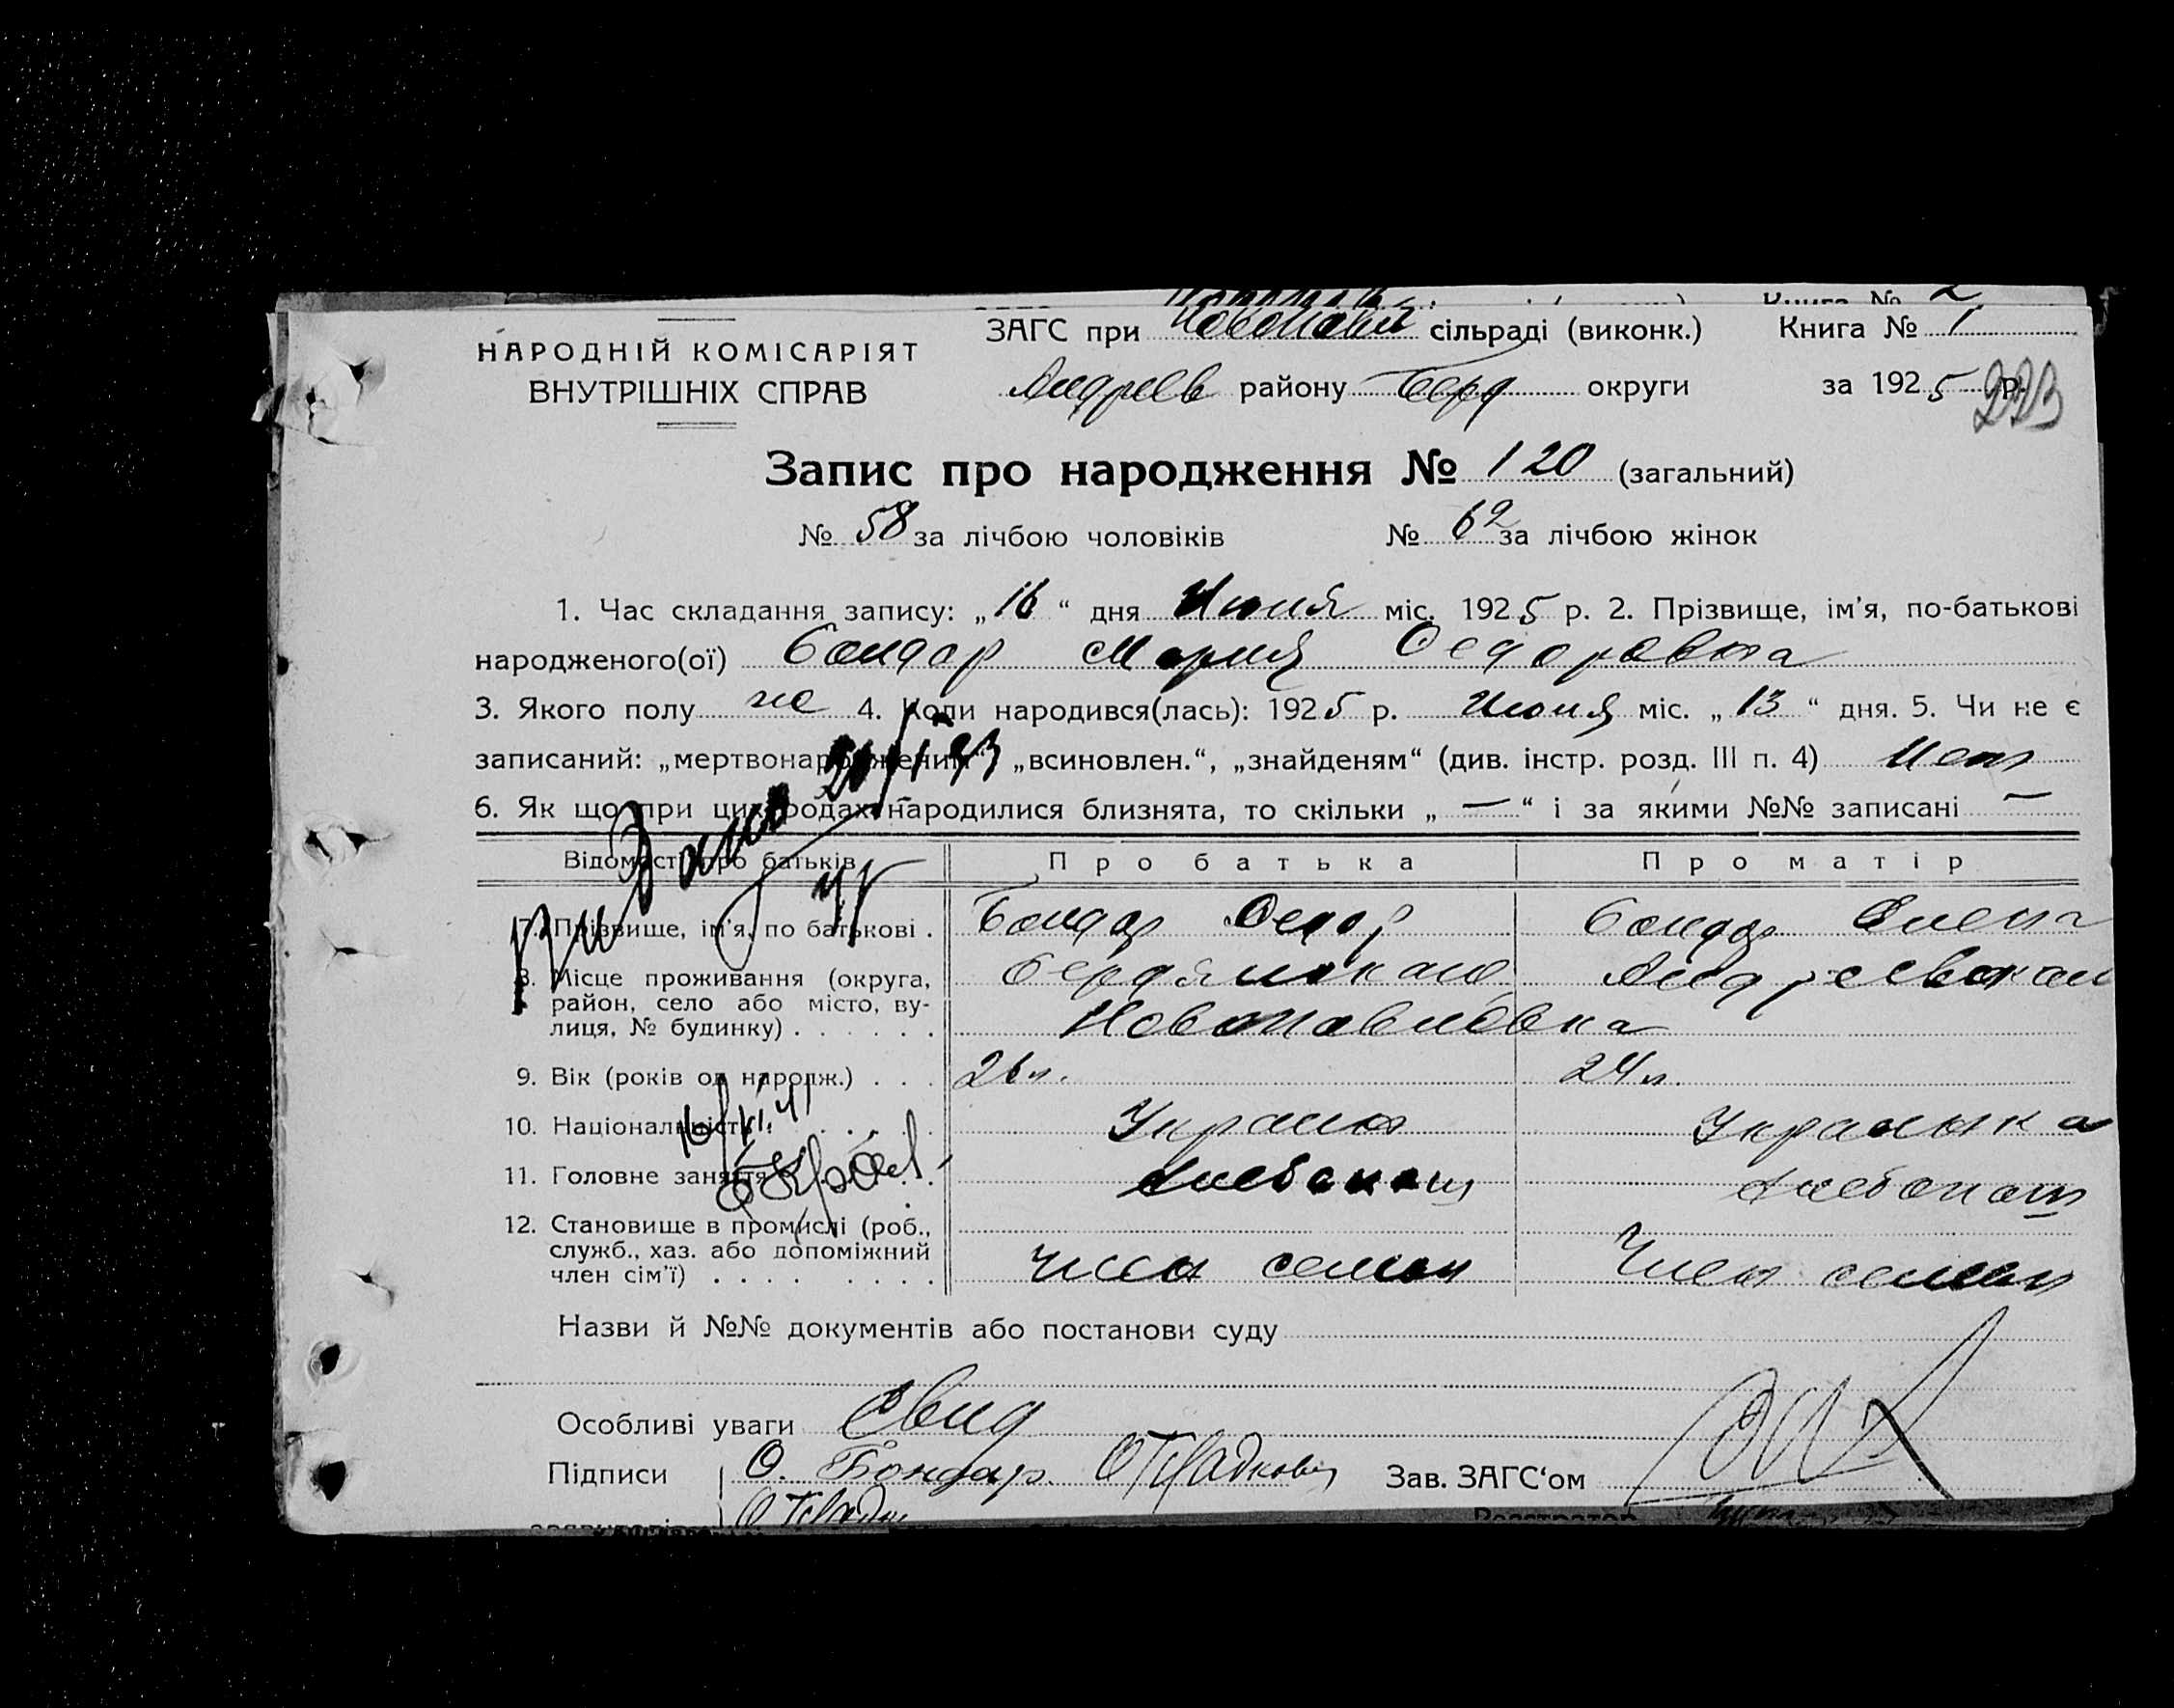 НАРОДНІЙ КОМІСАРІЯТ
ВНУТРІШНІХ СПРАВ
ЗАГС при Новопавл сільраді (виконк.) Книга № 1
Андреев району Берд округи за 1925 р.
223
Запис про народження № 120 (загальний)
№ 58 за лічбою чоловіків № 62 за лічбою жінок
1. Час складання запису: „16“ дня Июня міс. 1925 р. 2. Прізвище, ім'я, по-батькові
народженого(ої) Бондар Мария Федоровна
3. Якого полу же 4. Коли народився(лась): 1925 р. Июня міс. „13“ дня. 5. Чи не є
записаний: „мертвонароджений“, „всиновлен.“, „знайденям“ (див. інстр. розд. III п. 4) Нет
6. Як що при цих родах народилися близнята, то скільки „—“ і за якими №№ записані —
Відомості про батьків Про батька Про матір
7. Прізвище, ім'я, по батькові . Бондар Федор Бондар Елена
8. Місце проживання (округа, район, село або місто, вулиця, № будинку) . . . . . . Бердянская Андреевская
Новопавловка
9. Вік (років од народж.) . . . 26 л. 24 л.
10. Національність . . . . Украин Украинка
11. Головне заняття . . . . Хлебопаш Хлебопаш
12. Становище в промислі (роб., служб., хаз. або допоміжний член сім'ї) . . . . . . . . . Член семьи Член семьи
Назви й №№ документів або постанови суду
Особливі уваги Свид
Підписи О. Бондар. Зав. ЗАГС'ом